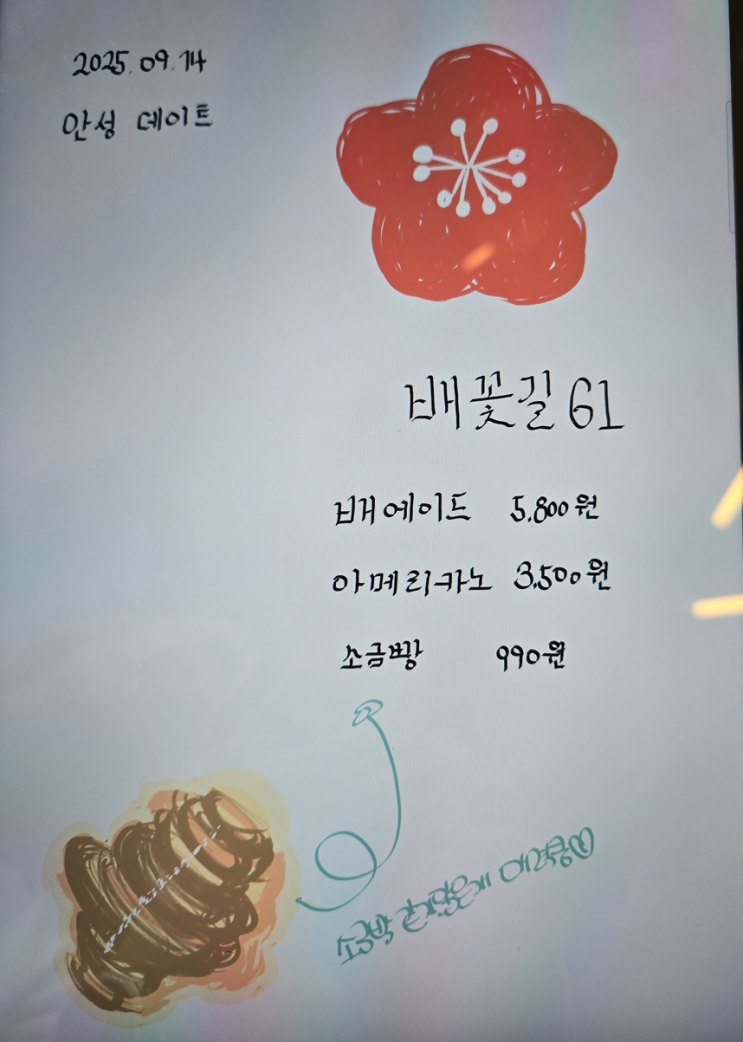 2025.09.14
안성 데이트
배꽃길 61
배에이드 5,800원
아메리카노 3,500원
소금빵 990원